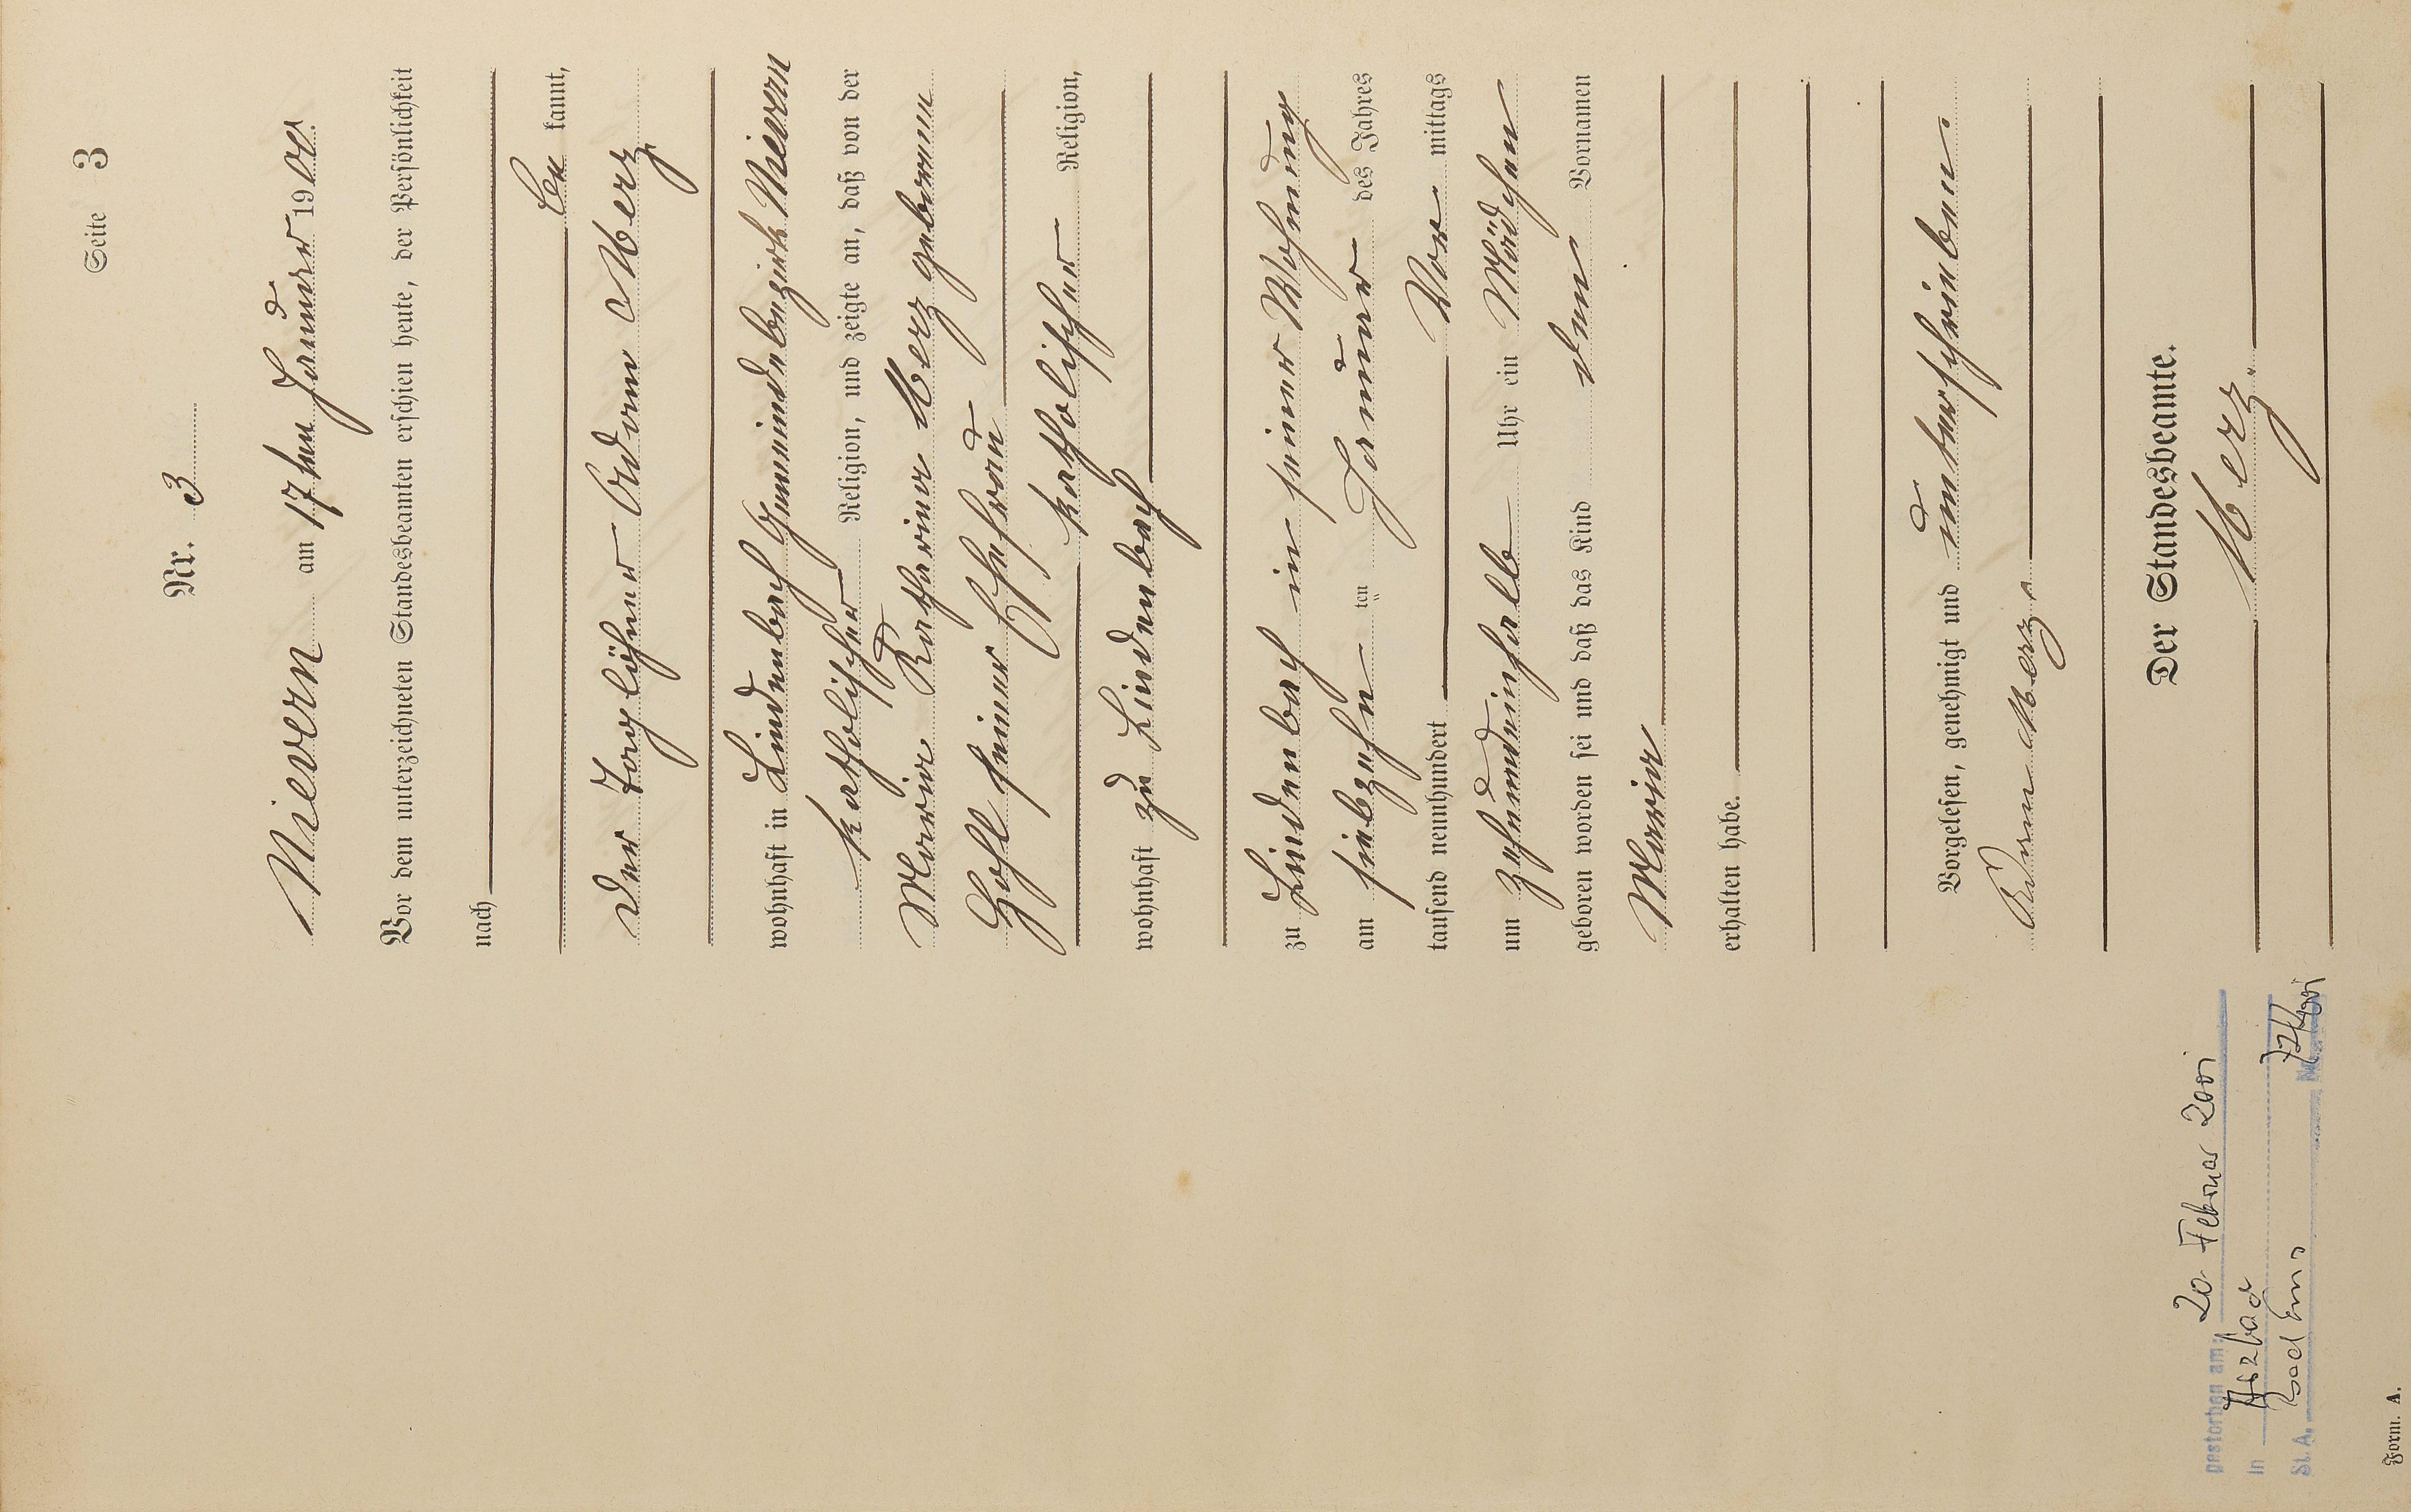 Seite 3
Nr. 3
Nievern am 17ten Januar 1900.
Vor dem unterzeichneten Standesbeamten erschien heute, der Persönlichkeit
nach
be kannt,
der Taglöhner Adam Merz
wohnhaft in Lindenbach Gemeindebezirk Nievern
katholischer Religion, und zeigte an, daß von der
Maria Katharina Merz geborene
Hohl seiner Ehefrau
katholischer Religion,
wohnhaft zu Lindenbach
zu Lindenbach in seiner Wohnung
am siebzehn ten Januar des Jahres
tausend neunhundert Vor mittags
um zehneinhalb Uhr ein Mädchen
geboren worden sei und daß das Kind den Vornamen
Maria
erhalten habe.
Vorgelesen, genehmigt und unterschrieben
Adam Merz
Der Standesbeamte.
Merz
gestorben am: 20. Februar 2001
in
St. A. Bad Ems Nr. 72/2001
Form. A.